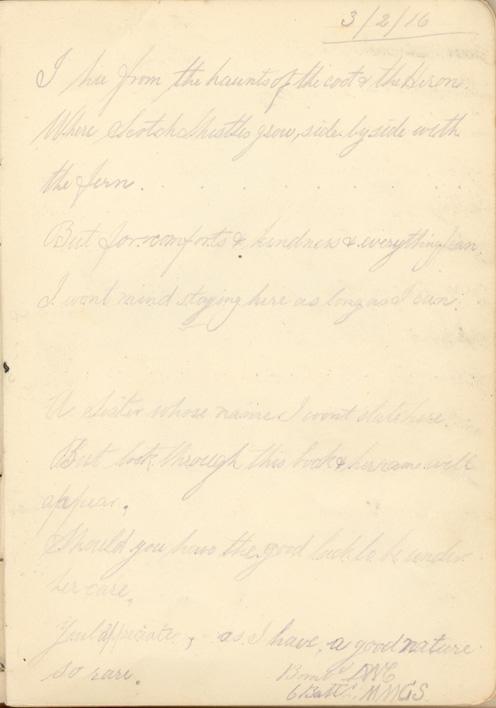 3/2/16
I hie from the haunts of the coot & the Heron.
Where Scotch thistles grow, side by side with
the fern.
But for comforts & kindness & everything
I wont mind staying here as long as I can.
A Sister whose name I wont state here.
But look through this book & her name will
appear.
Should you have the good luck to be under
her care.
Youl appriciate, as I have, a good nature
so rare.
Bombr
6 Batt. MMGS.